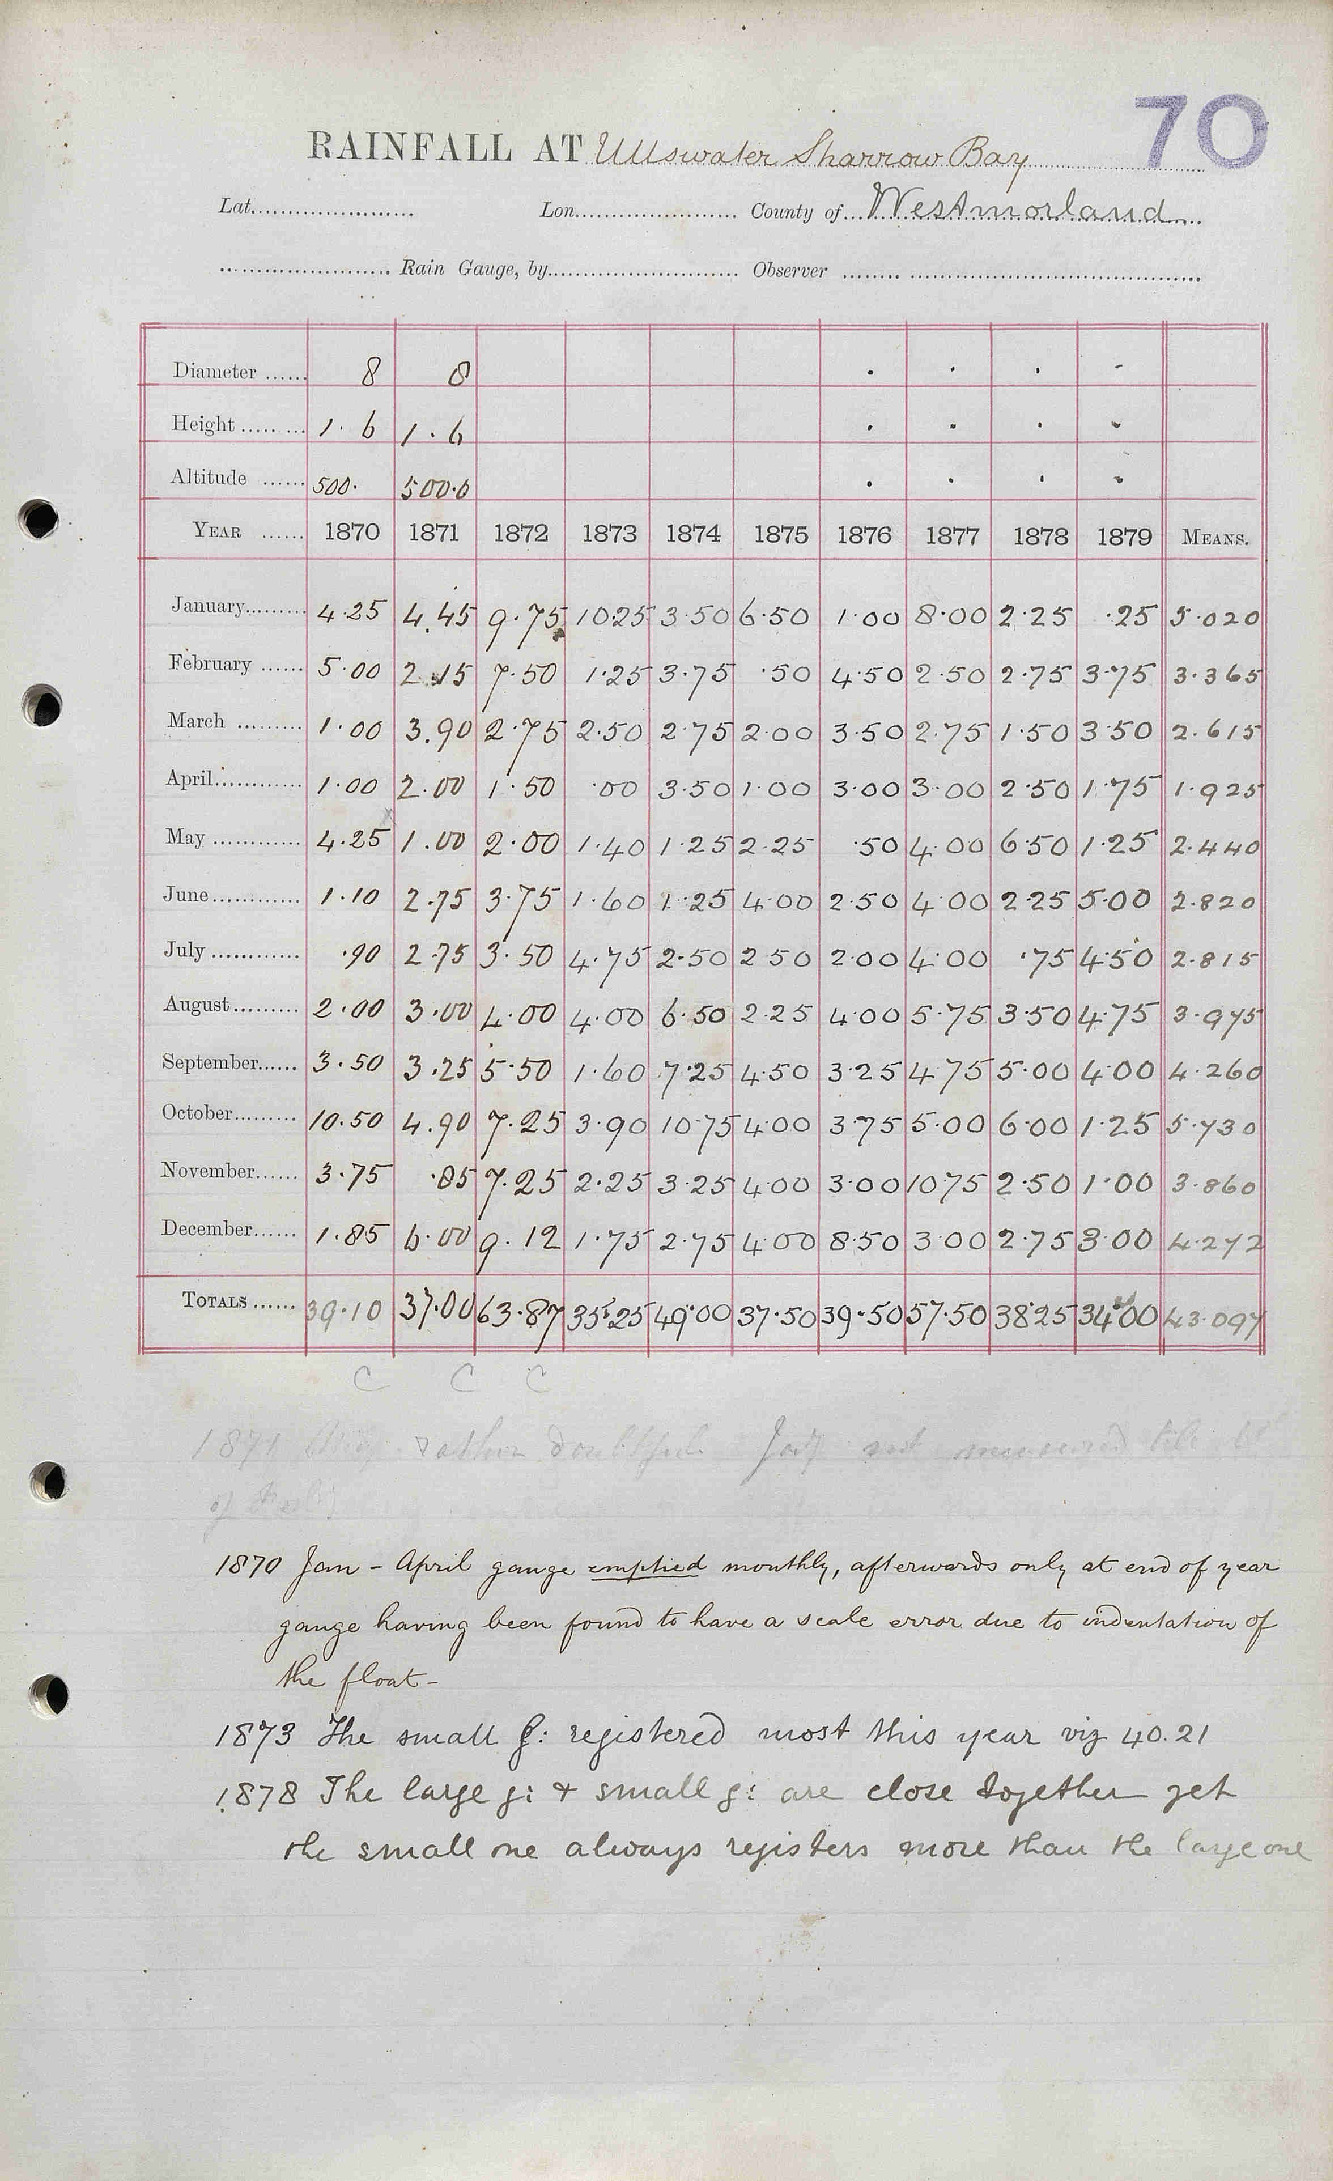 70
RAINFALL AT Ullswater Sharrow Bay
Lat. Lon. County of Westmorland
Rain Gauge, by Observer
Diameter 8 8
Height 1.6 1.6
Altitude 500. 500.0
YEAR 1870 1871 1872 1873 1874 1875 1876 1877 1878 1879 MEANS.
January 4.25 4.45 9.75 10.25 3.50 6.50 1.00 8.00 2.25 .25 5.020
February 5.00 2.15 7.50 1.25 3.75 .50 4.50 2.50 2.75 3.75 3.365
March 1.00 3.90 2.75 2.50 2.75 2.00 3.50 2.75 1.50 3.50 2.615
April 1.00 2.00 1.50 .00 3.50 1.00 3.00 3.00 2.50 1.75 1.925
May 4.25 1.00 2.00 1.40 1.25 2.25 .50 4.00 6.50 1.25 2.440
June 1.10 2.75 3.75 1.60 1.25 4.00 2.50 4.00 2.25 5.00 2.820
July .90 2.75 3.50 4.75 2.50 2.50 2.00 4.00 .75 4.50 2.815
August 2.00 3.00 4.00 4.00 6.50 2.25 4.00 5.75 3.50 4.75 3.975
September 3.50 3.25 5.50 1.60 7.25 4.50 3.25 4.75 5.00 4.00 4.260
October 10.50 4.90 7.25 3.90 10.75 4.00 3.75 5.00 6.00 1.25 5.730
November 3.75 .85 7.25 2.25 3.25 4.00 3.00 10.75 2.50 1.00 3.860
December 1.85 6.00 9.12 1.75 2.75 4.00 8.50 3.00 2.75 3.00 4.272
TOTALS 39.10 37.00 63.87 35.25 49.00 37.50 39.50 57.50 38.25 34.00 43.097
C C C
1871 rather doubtful not measured
of
1870 Jan - April gauge emptied monthly, afterwards only at end of year
gauge having been found to have a scale error due to indentation of
the float -
1873 The small g: registered most this year viz 40.21
1878 The large g: & small g: are close together yet
the small one always registers more than the large one